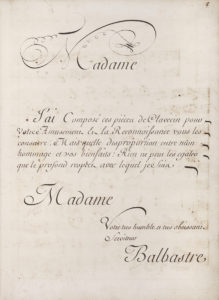 Madame
J'ai Composé ces pièces de Clavecin pour
Votre Amusement & la Reconnoissance vous les
consacre : Mais quelle disproportion entre mon
hommage et vos bienfaits : Rien ne peut les egaler
que le profond respect avec lequel je suis
Madame
Votre tres humble et tres obeissant
Serviteur
Balbastre